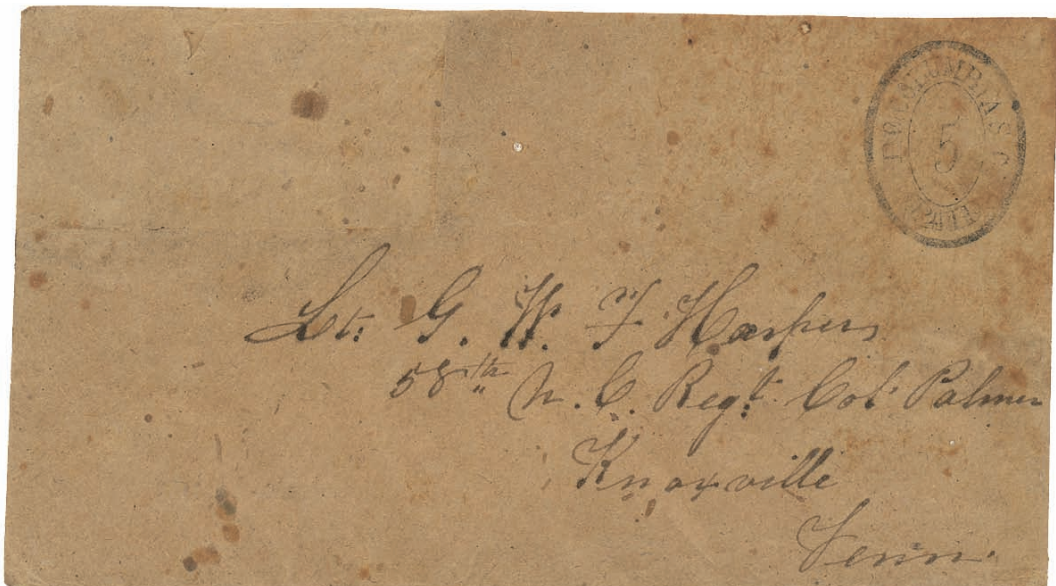 P.O. COLUMBIA S.C.
5
PAID
Lt. G. W. F. Harper
58th N. C. Regt. Col Palmer
Knoxville
Tenn.